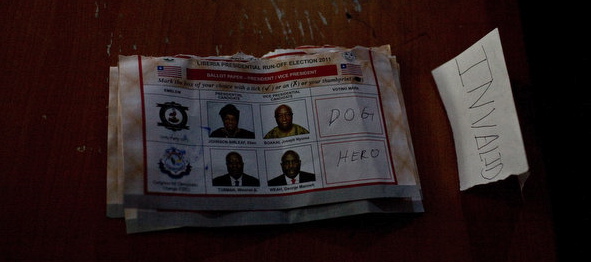 LIBERIA PRESIDENTIAL RUN-OFF ELECTION 2011
BALLOT PAPER - PRESIDENT / VICE PRESIDENT
Mark the box of your choice with a tick (✓) or an (X) or your thumbprint
EMBLEM
PRESIDENTIAL CANDIDATE
VICE PRESIDENTIAL CANDIDATE
VOTERS MARK
DOG
JOHNSON SIRLEAF, Ellen
BOAKAI, Joseph Nyuma
HERO
TUBMAN, Winston A.
WEAH, George Manneh
Congress for Democratic Change (CDC)
INVALID